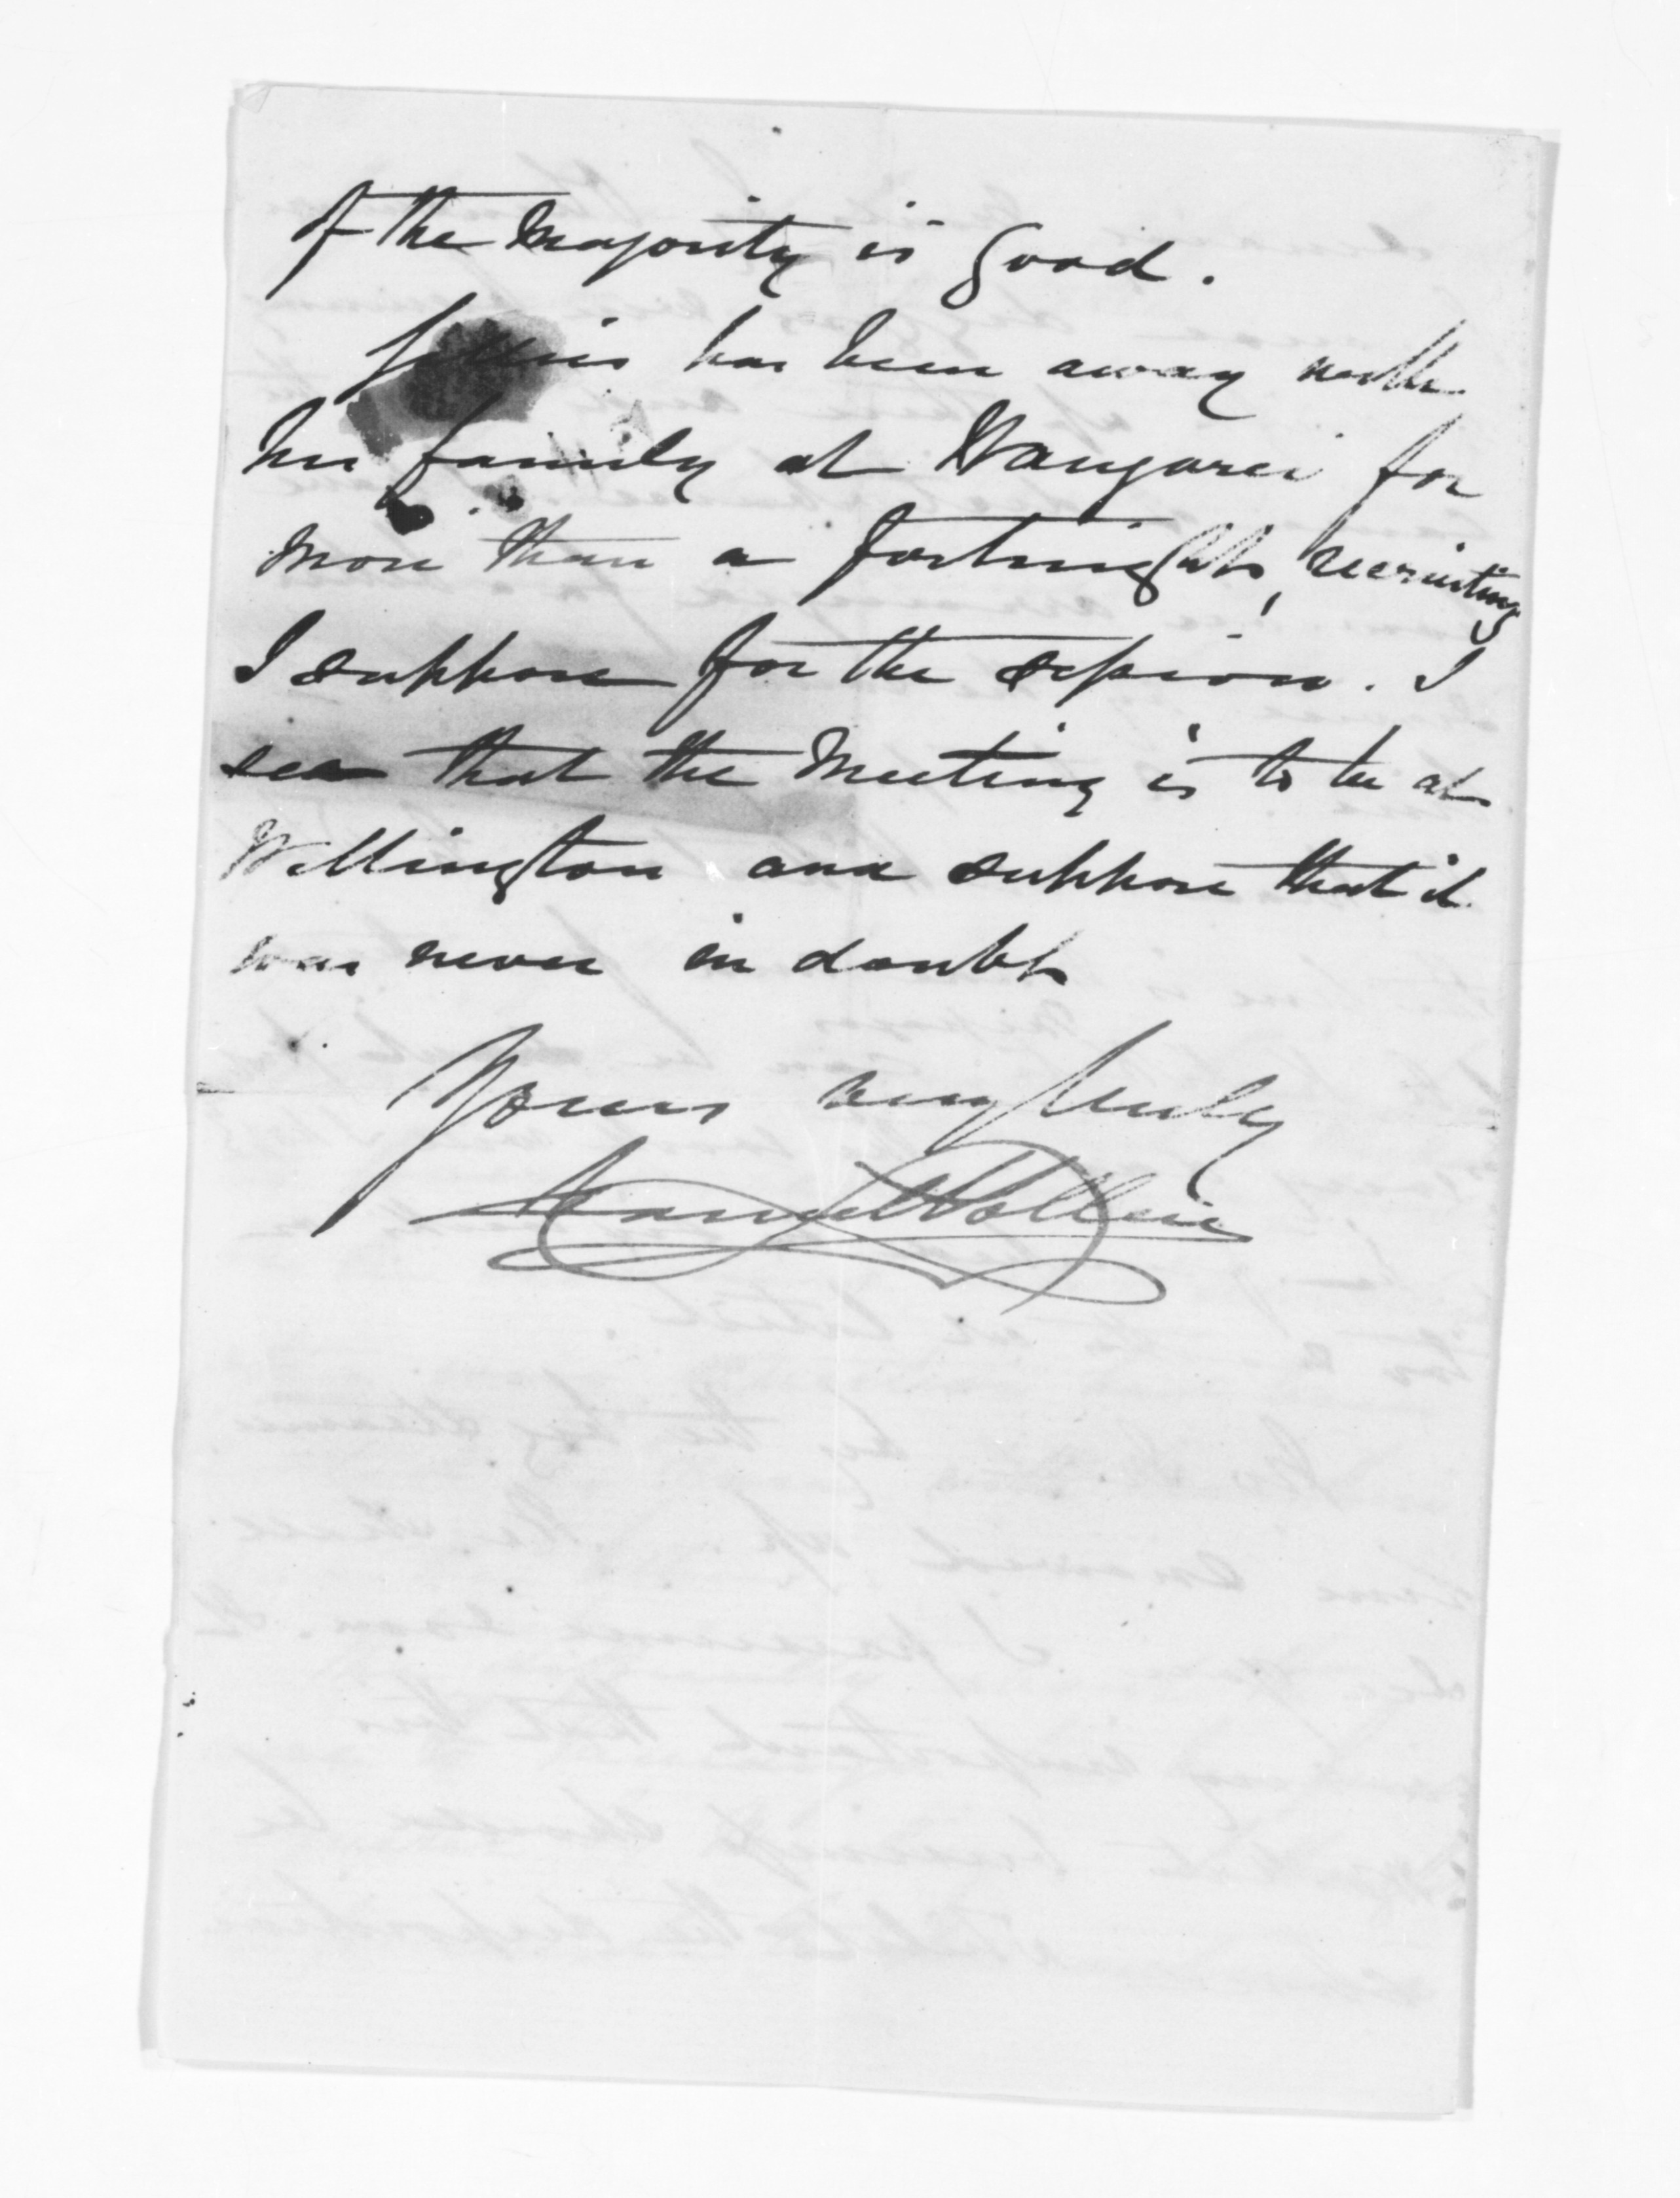 of the Majority is good.
has been away with
his family at Wangarei for
more than a fortnight, recruiting
I suppose for the session. I
see that the Meeting is to be at
Wellington and suppose that it
was never in doubt
Yours very truly
Daniel Pollen